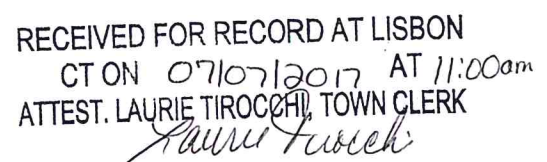 RECEIVED FOR RECORD AT LISBON
CT ON 07/07/2017 AT 11:00am
ATTEST. LAURIE TIROCCHI, TOWN CLERK
Laurie Tirocchi